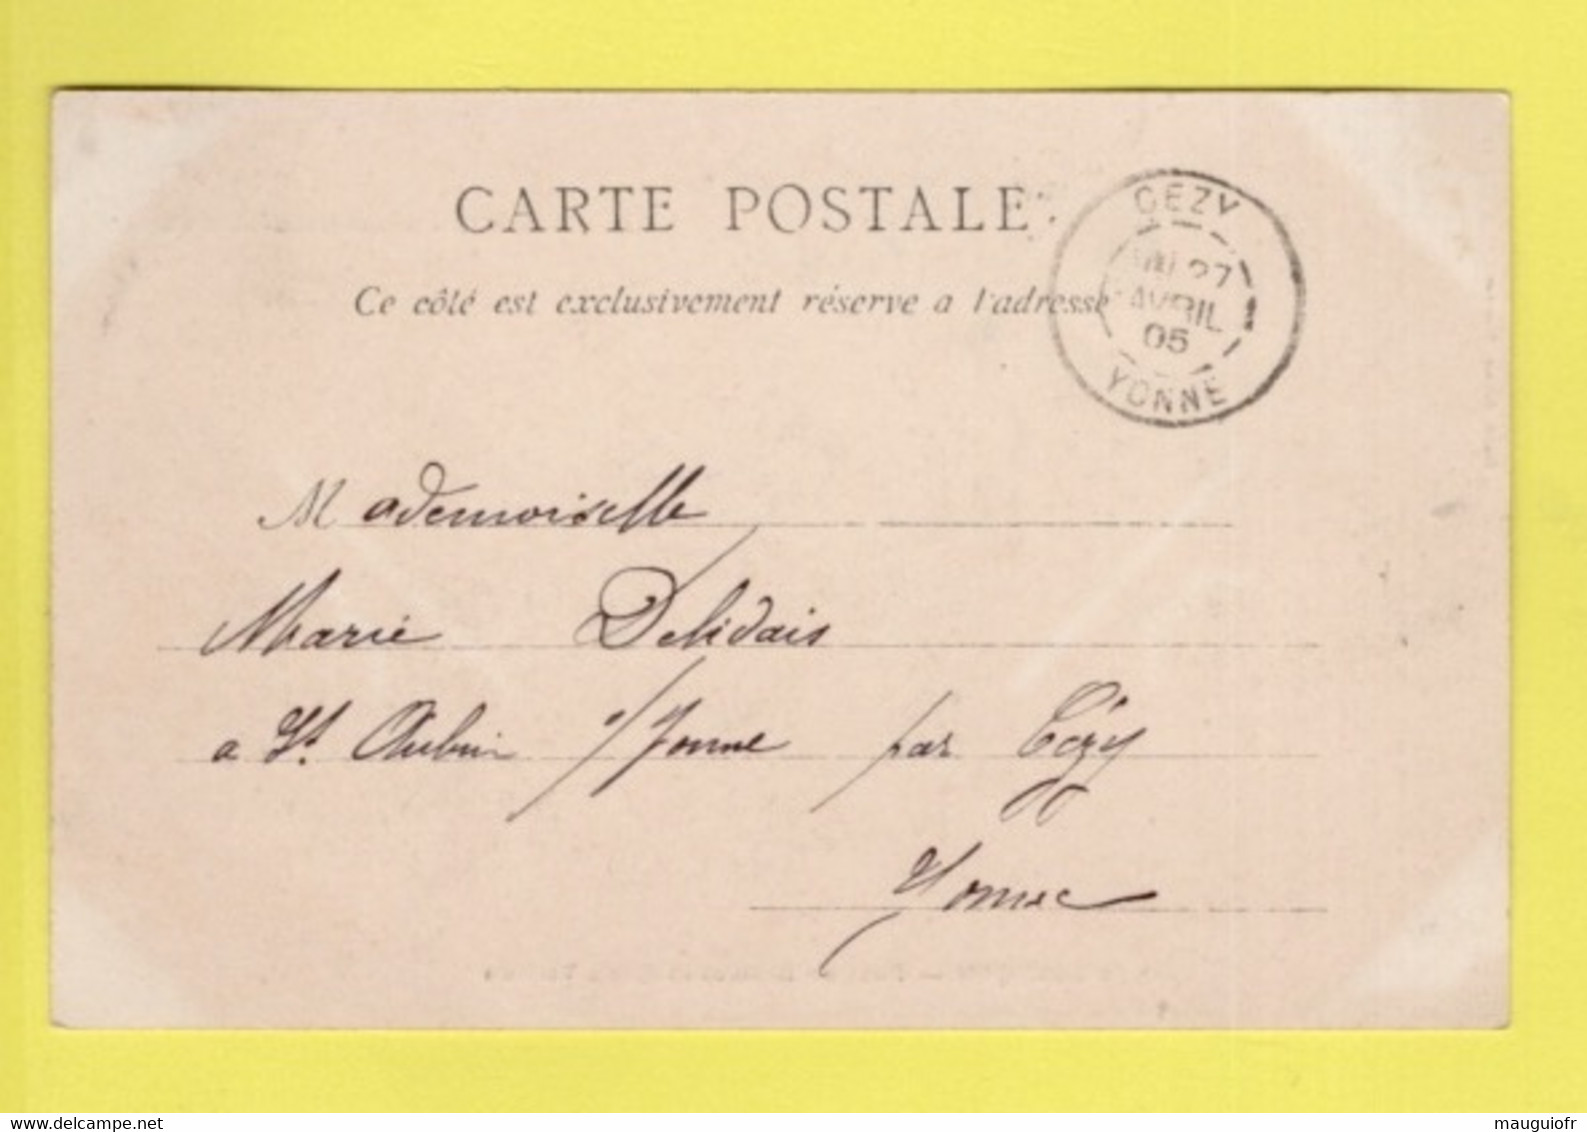 CARTE POSTALE
CEZY
27
AVRIL
05
YONNE
Ce côté est exclusivement réserve a l'adresse
Mademoiselle
Marie Delidais
a St. Aubin s/Yonne par Cézy
Yonne
delcampe.net
mauguiofr